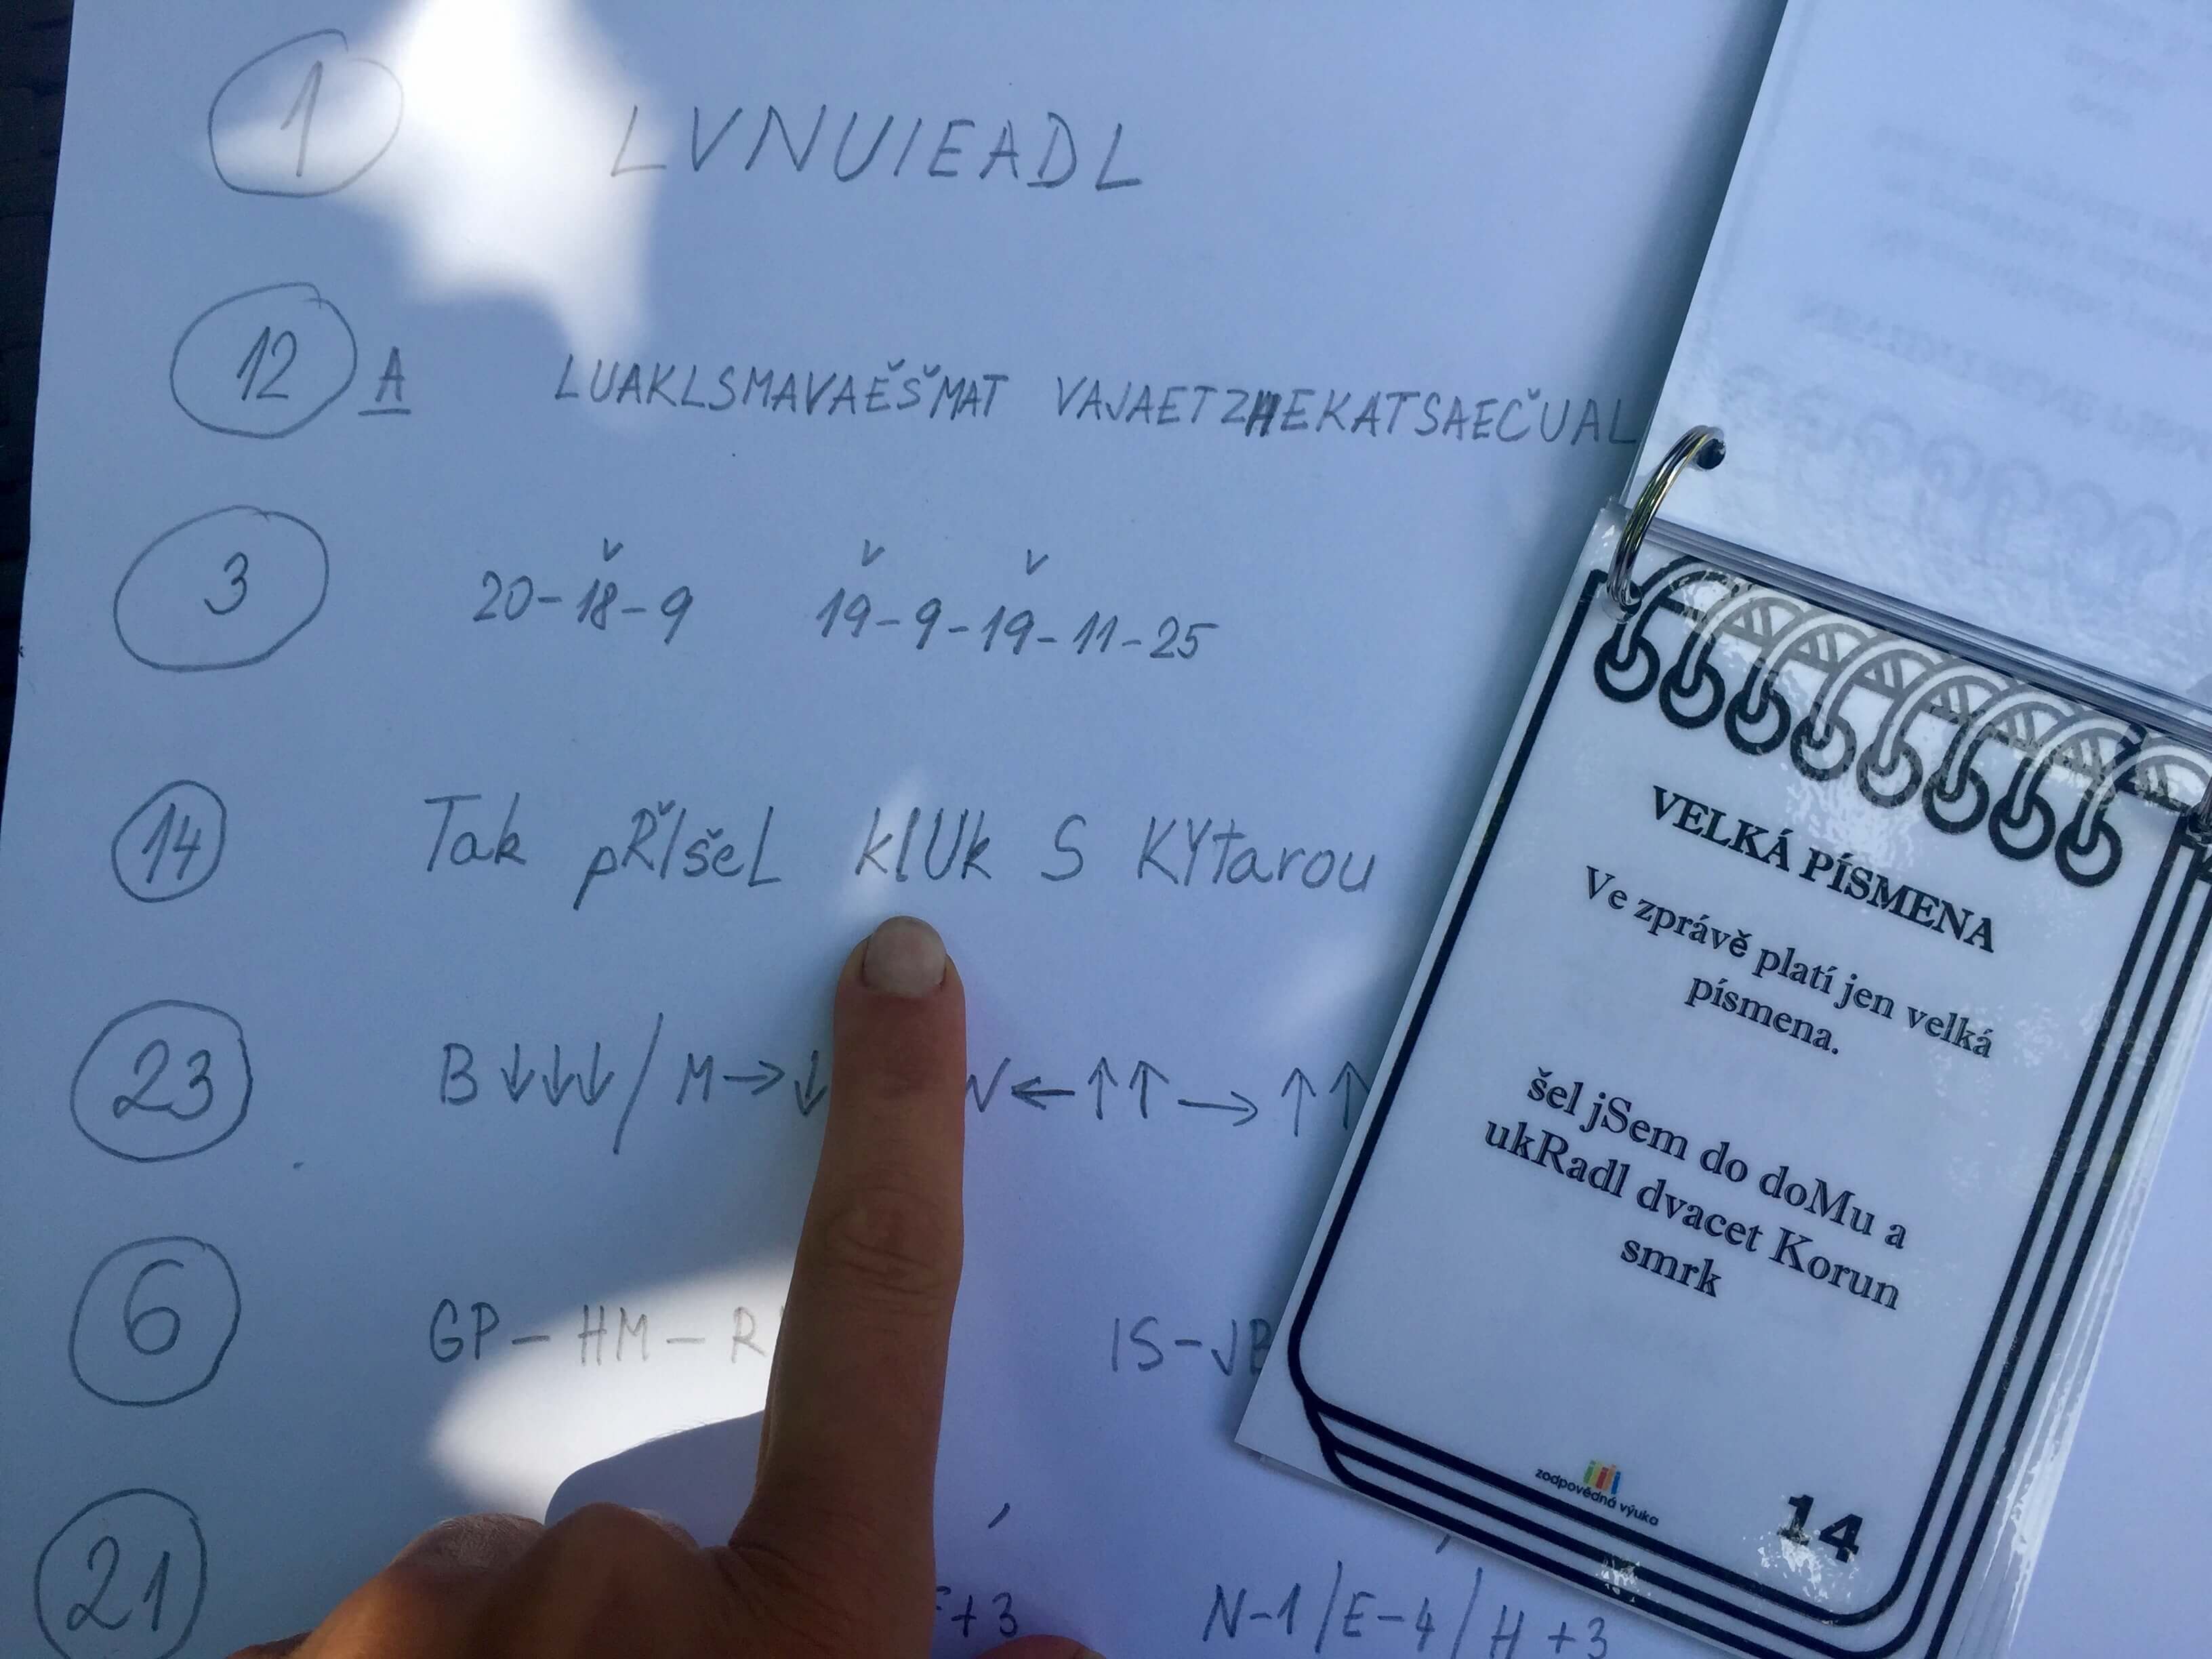 1 LVNUIEADL
12 A LUAKLSMAVAĚŠMAT VAJAETZHEKATSAEČUAL
3 20-1̌8-9 1̌9-9-1̌9-11-25
14 Tak pŘIšeL klUk S KYtarou
23 B↓↓↓/M→↓ ←↑↑→↑↑
6 GP-HM-R IS-JB
21 +3 N-1/E-4/H+3
VELKÁ PÍSMENA
Ve zprávě platí jen velká
písmena.
šel jSem do doMu a
ukRadl dvacet Korun
smrk
zodpovědná výuka
14